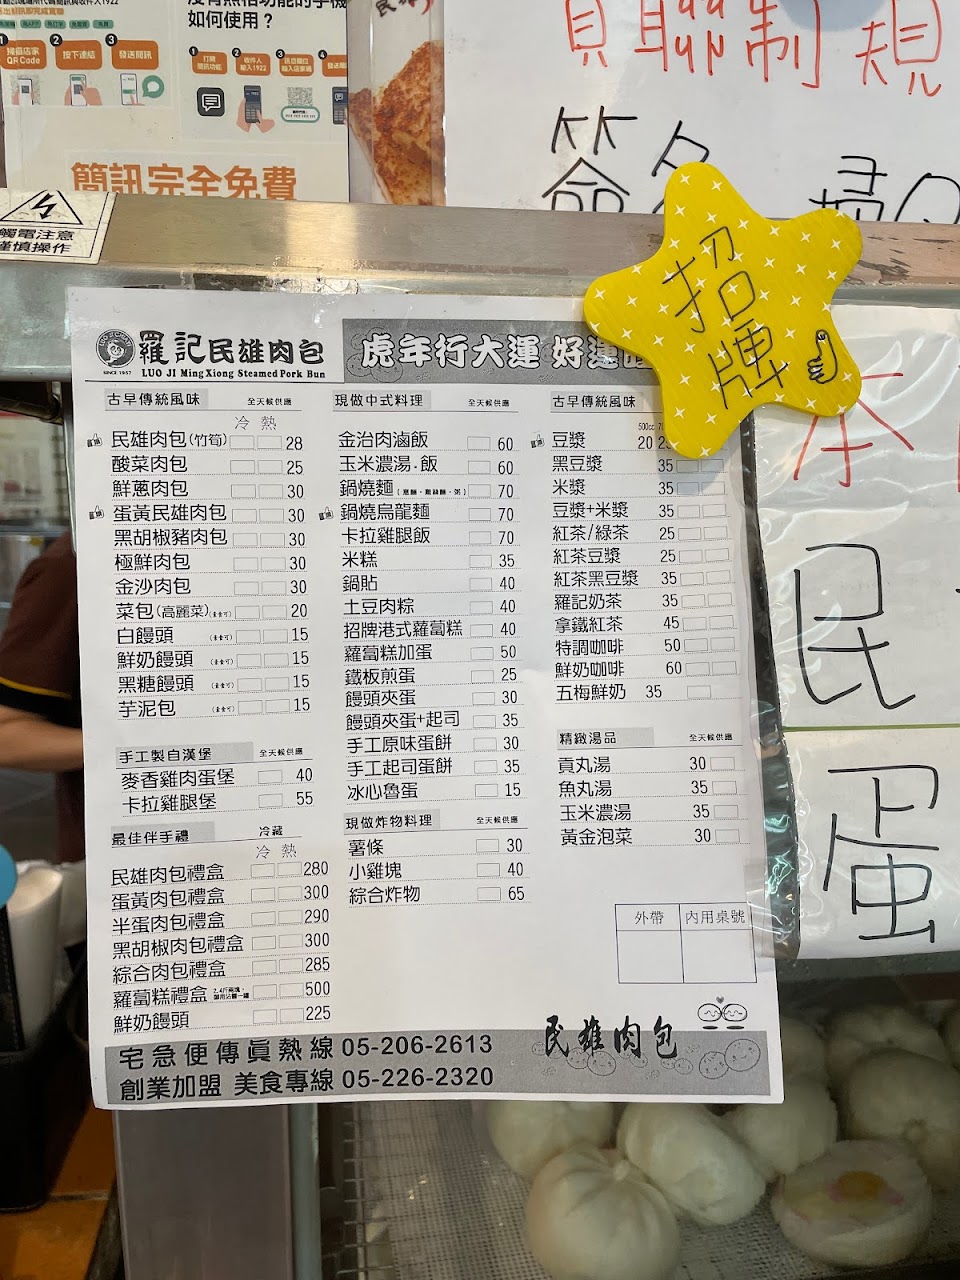 如何使用？
1 2 3
掃描店家 QR Code
按下連結
發送簡訊
1 2 3 4
打開簡訊功能
收件人輸入1922
簡訊完全免費
實聯制 規
簽名 掃Q
觸電注意
謹慎操作
招牌
羅記民雄肉包
SINCE 1957
LUO JI MingXiong Steamed Pork Bun
虎年行大運 好運
古早傳統風味 全天候供應
冷 熱
民雄肉包(竹筍) 28
酸菜肉包 25
鮮蔥肉包 30
蛋黃民雄肉包 30
黑胡椒豬肉包 30
極鮮肉包 30
金沙肉包 30
菜包(高麗菜)(素食可) 20
白饅頭 (素食可) 15
鮮奶饅頭 (素食可) 15
黑糖饅頭 (素食可) 15
芋泥包 (素食可) 15
手工製自漢堡 全天候供應
麥香雞肉蛋堡 40
卡拉雞腿堡 55
最佳伴手禮 冷藏
冷 熱
民雄肉包禮盒 280
蛋黃肉包禮盒 300
半蛋肉包禮盒 290
黑胡椒肉包禮盒 300
綜合肉包禮盒 285
蘿蔔糕禮盒 500
鮮奶饅頭 225
現做中式料理 全天候供應
金治肉滷飯 60
玉米濃湯.飯 60
鍋燒麵 70
鍋燒烏龍麵 70
卡拉雞腿飯 70
米糕 35
鍋貼 40
土豆肉粽 40
招牌港式蘿蔔糕 40
蘿蔔糕加蛋 50
鐵板煎蛋 25
饅頭夾蛋 30
饅頭夾蛋+起司 35
手工原味蛋餅 30
手工起司蛋餅 35
冰心魯蛋 15
現做炸物料理 全天候供應
薯條 30
小雞塊 40
綜合炸物 65
古早傳統風味
500cc
豆漿 20
黑豆漿 35
米漿 35
豆漿+米漿 35
紅茶/綠茶 25
紅茶豆漿 25
紅茶黑豆漿 35
羅記奶茶 35
拿鐵紅茶 45
特調咖啡 50
鮮奶咖啡 60
五梅鮮奶 35
精緻湯品 全天候供應
貢丸湯 30
魚丸湯 35
玉米濃湯 35
黃金泡菜 30
外帶 內用桌號
民雄肉包
宅急便傳真熱線 05-206-2613
創業加盟 美食專線 05-226-2320
本
民
蛋